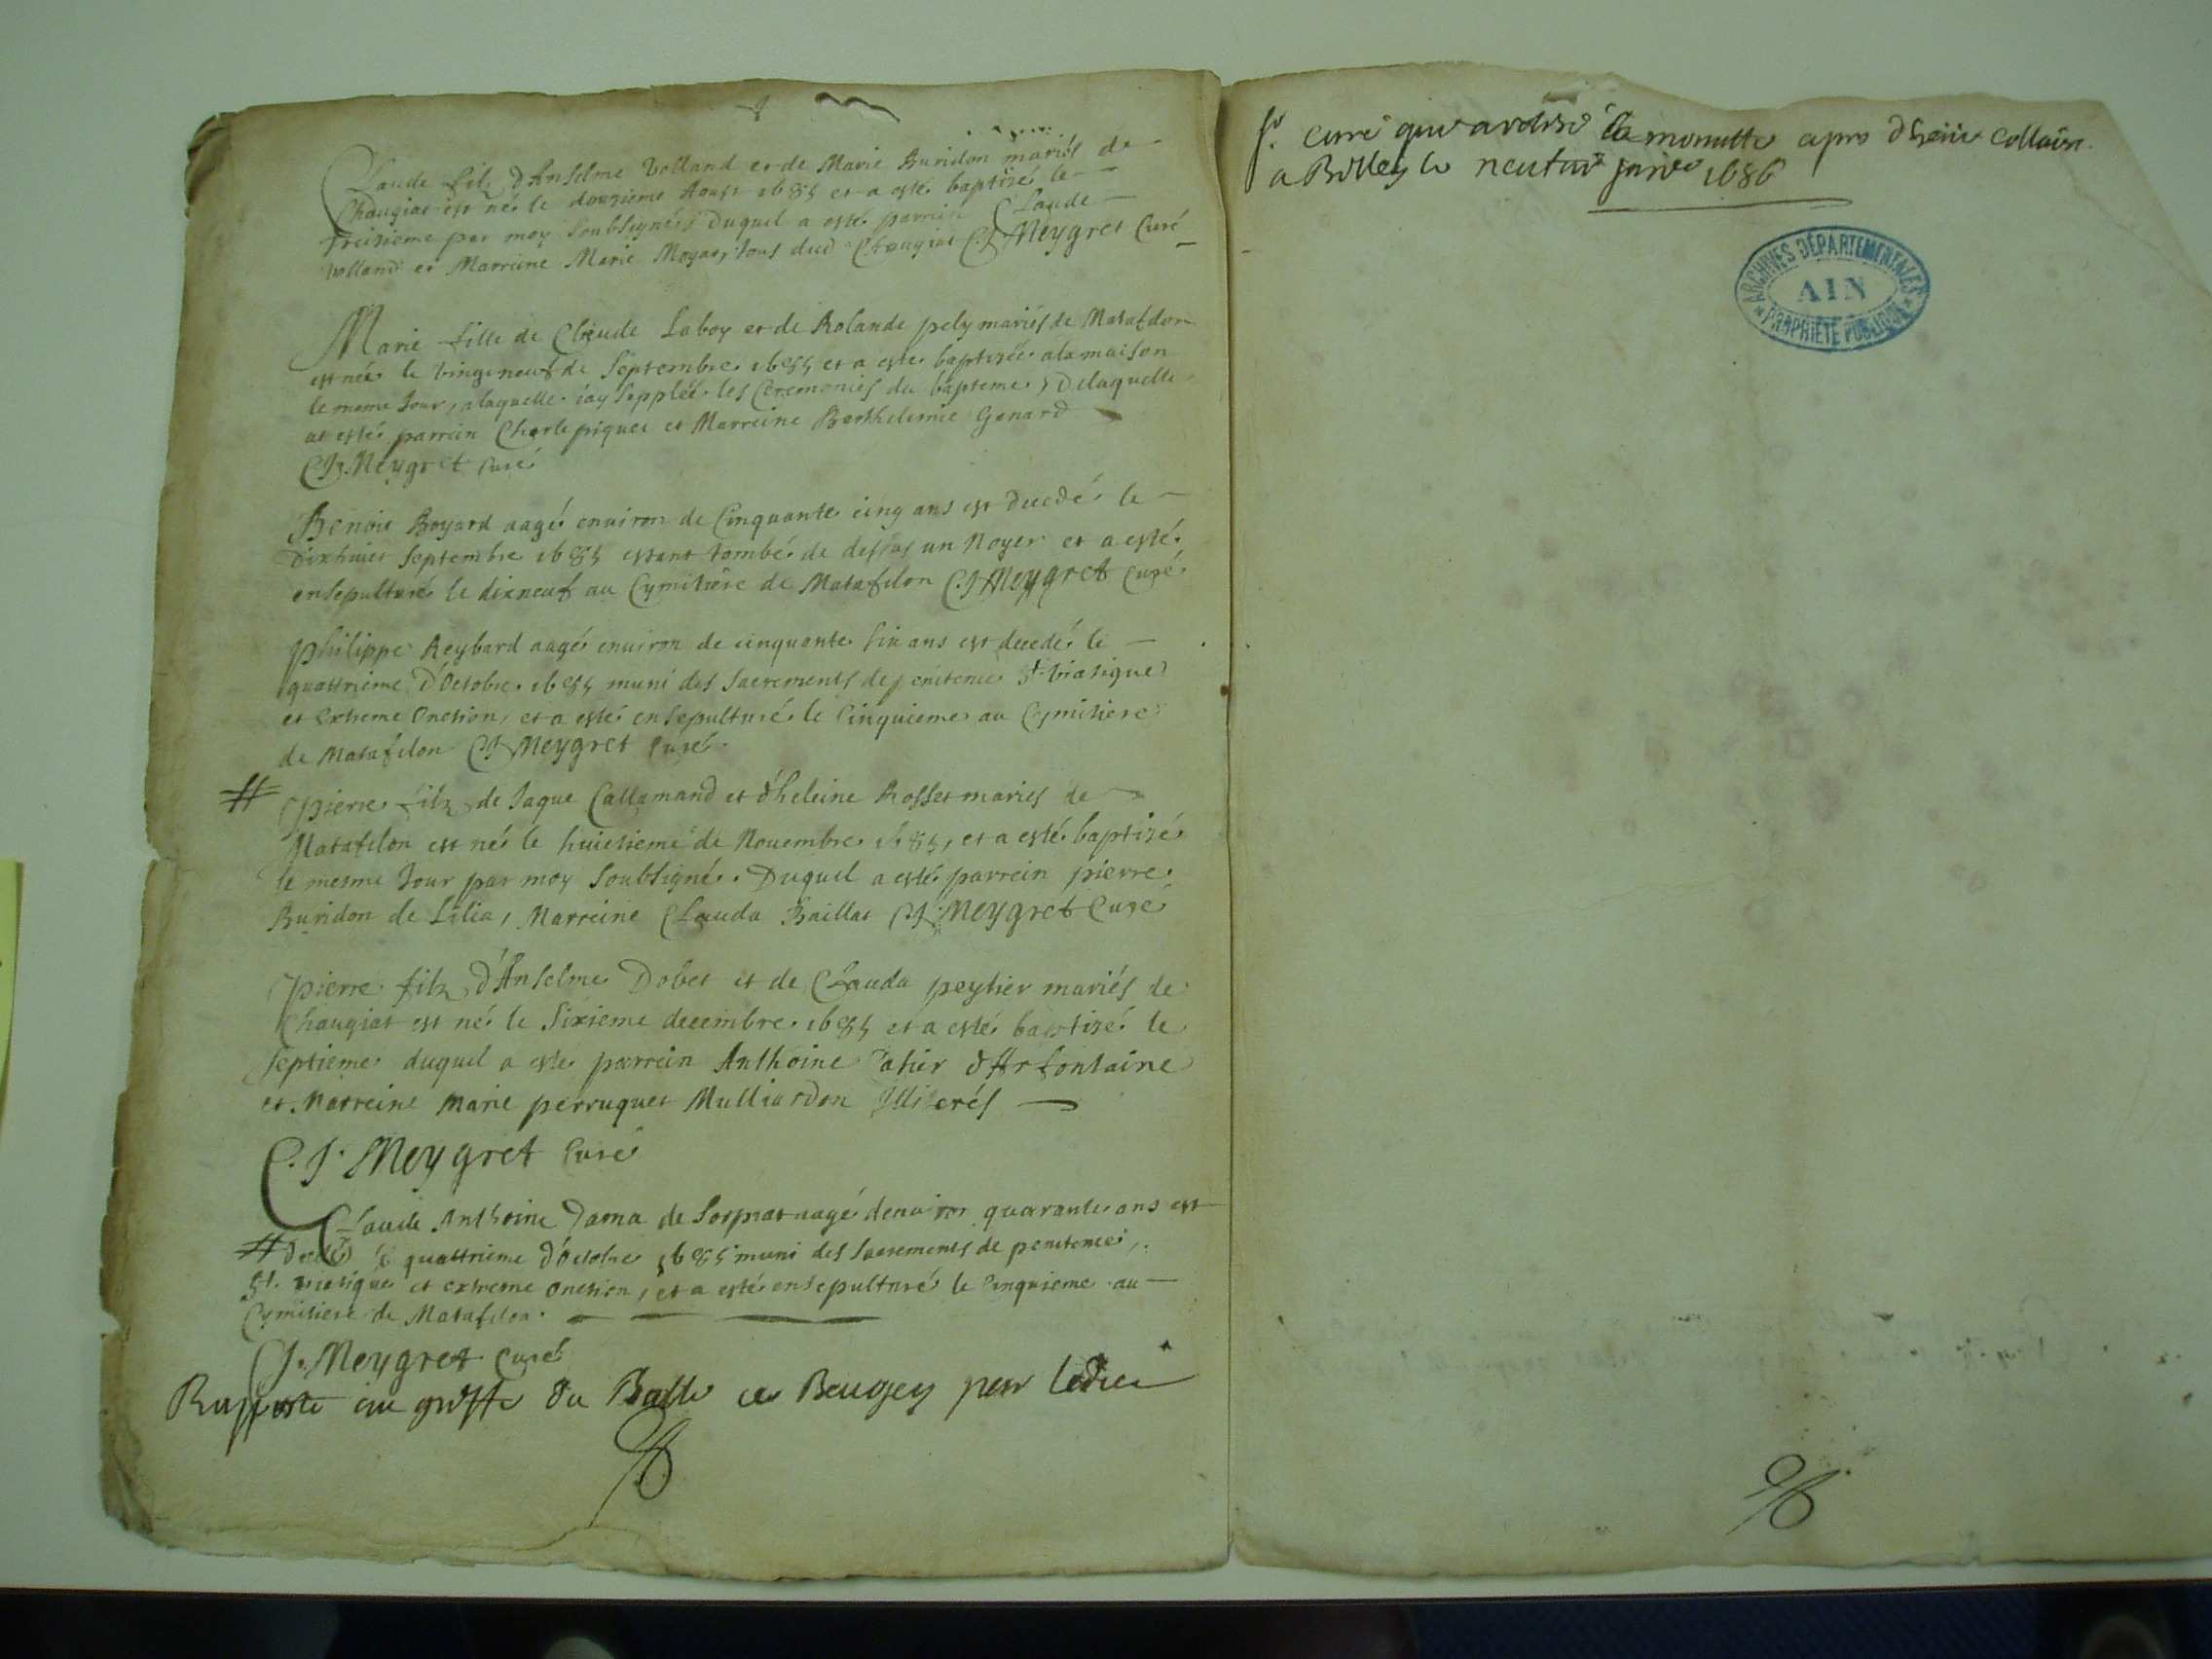 Claude filz d'Anselme Volland et de Marie Buridon mariés de
Chaugiat est né le douzieme Aoust 1685 et a esté baptizé le
treizieme par moy soubsigné duquel a esté parrin Claude
Volland et Marreine Marie Moyat, tous dud Chaugiat C.J. Meygret Curé
Marie fille de Claude Laboy et de Rolande pely mariés de Matafelon
est née le vingt neuf de Septembre 1685 et a esté baptizée a la maison
le meme Jour, a laquelle iay supplée les Ceremonies du bapteme, De laquelle
at esté parrein Charle piquet et Marreine Berthelemie Genard
C.J. Meygret curé
Benoit Boyard aagé enuiron de Cinquante cinq ans est decedé le
Dixhuict Septembre 1685 estant tombé de dessus un Noyer et a esté
ensepulturé le dixneuf au Cymitiere de Matafelon C.J. Meygret Curé
Philippe Reybard aagé enuiron de cinquante six ans est decedé le
quattrieme D'Octobre 1685 muni des Sacrements de penitence St. viatique
et extreme Onction, et a esté ensepulturé le Cinquieme au Cymitiere
de Matafelon C.J. Meygret Curé
# Pierre filz de Jaque Callamand et d'heleine Rosset mariés de
Matafelon est né le huictieme de Nouembre 1685, et a esté baptizé
le mesme Jour par moy Soubsigné. Duquel a esté parrein pierre
Buridon de Lilia, Marreine Clauda Baillat C.J. Meygret Curé
Pierre filz d'Anselme Dobet et de Clauda peytier mariés de
Chaugiat est né le Sixieme decembre 1685 et a esté baptizé le
Septieme duquel a esté parrein Anthoine Catier d'Arfontaine
et Marreine Marie perruquet Mulliardon Illiterés
C.J. Meygret Curé
Claude Anthoine Dama de Sorpiat aagé denuiron quarante ans est
# decedé le quattrieme d'Octobre 1685 muni des Sacrements de penitence,
St. viatique et extreme onction, et a esté ensepulturé le Cinquieme au
Cymitiere de Matafelon.
C.J. Meygret Curé
Rapporté au greffe du Balle de Beugey par ledict
Sr. curé qui a retiré la minutte apres dheue Collation
a Belley le neufvie janvier 1686
ARCHIVES DÉPARTEMENTALES
AIN
PROPRIÉTÉ PUBLIQUE